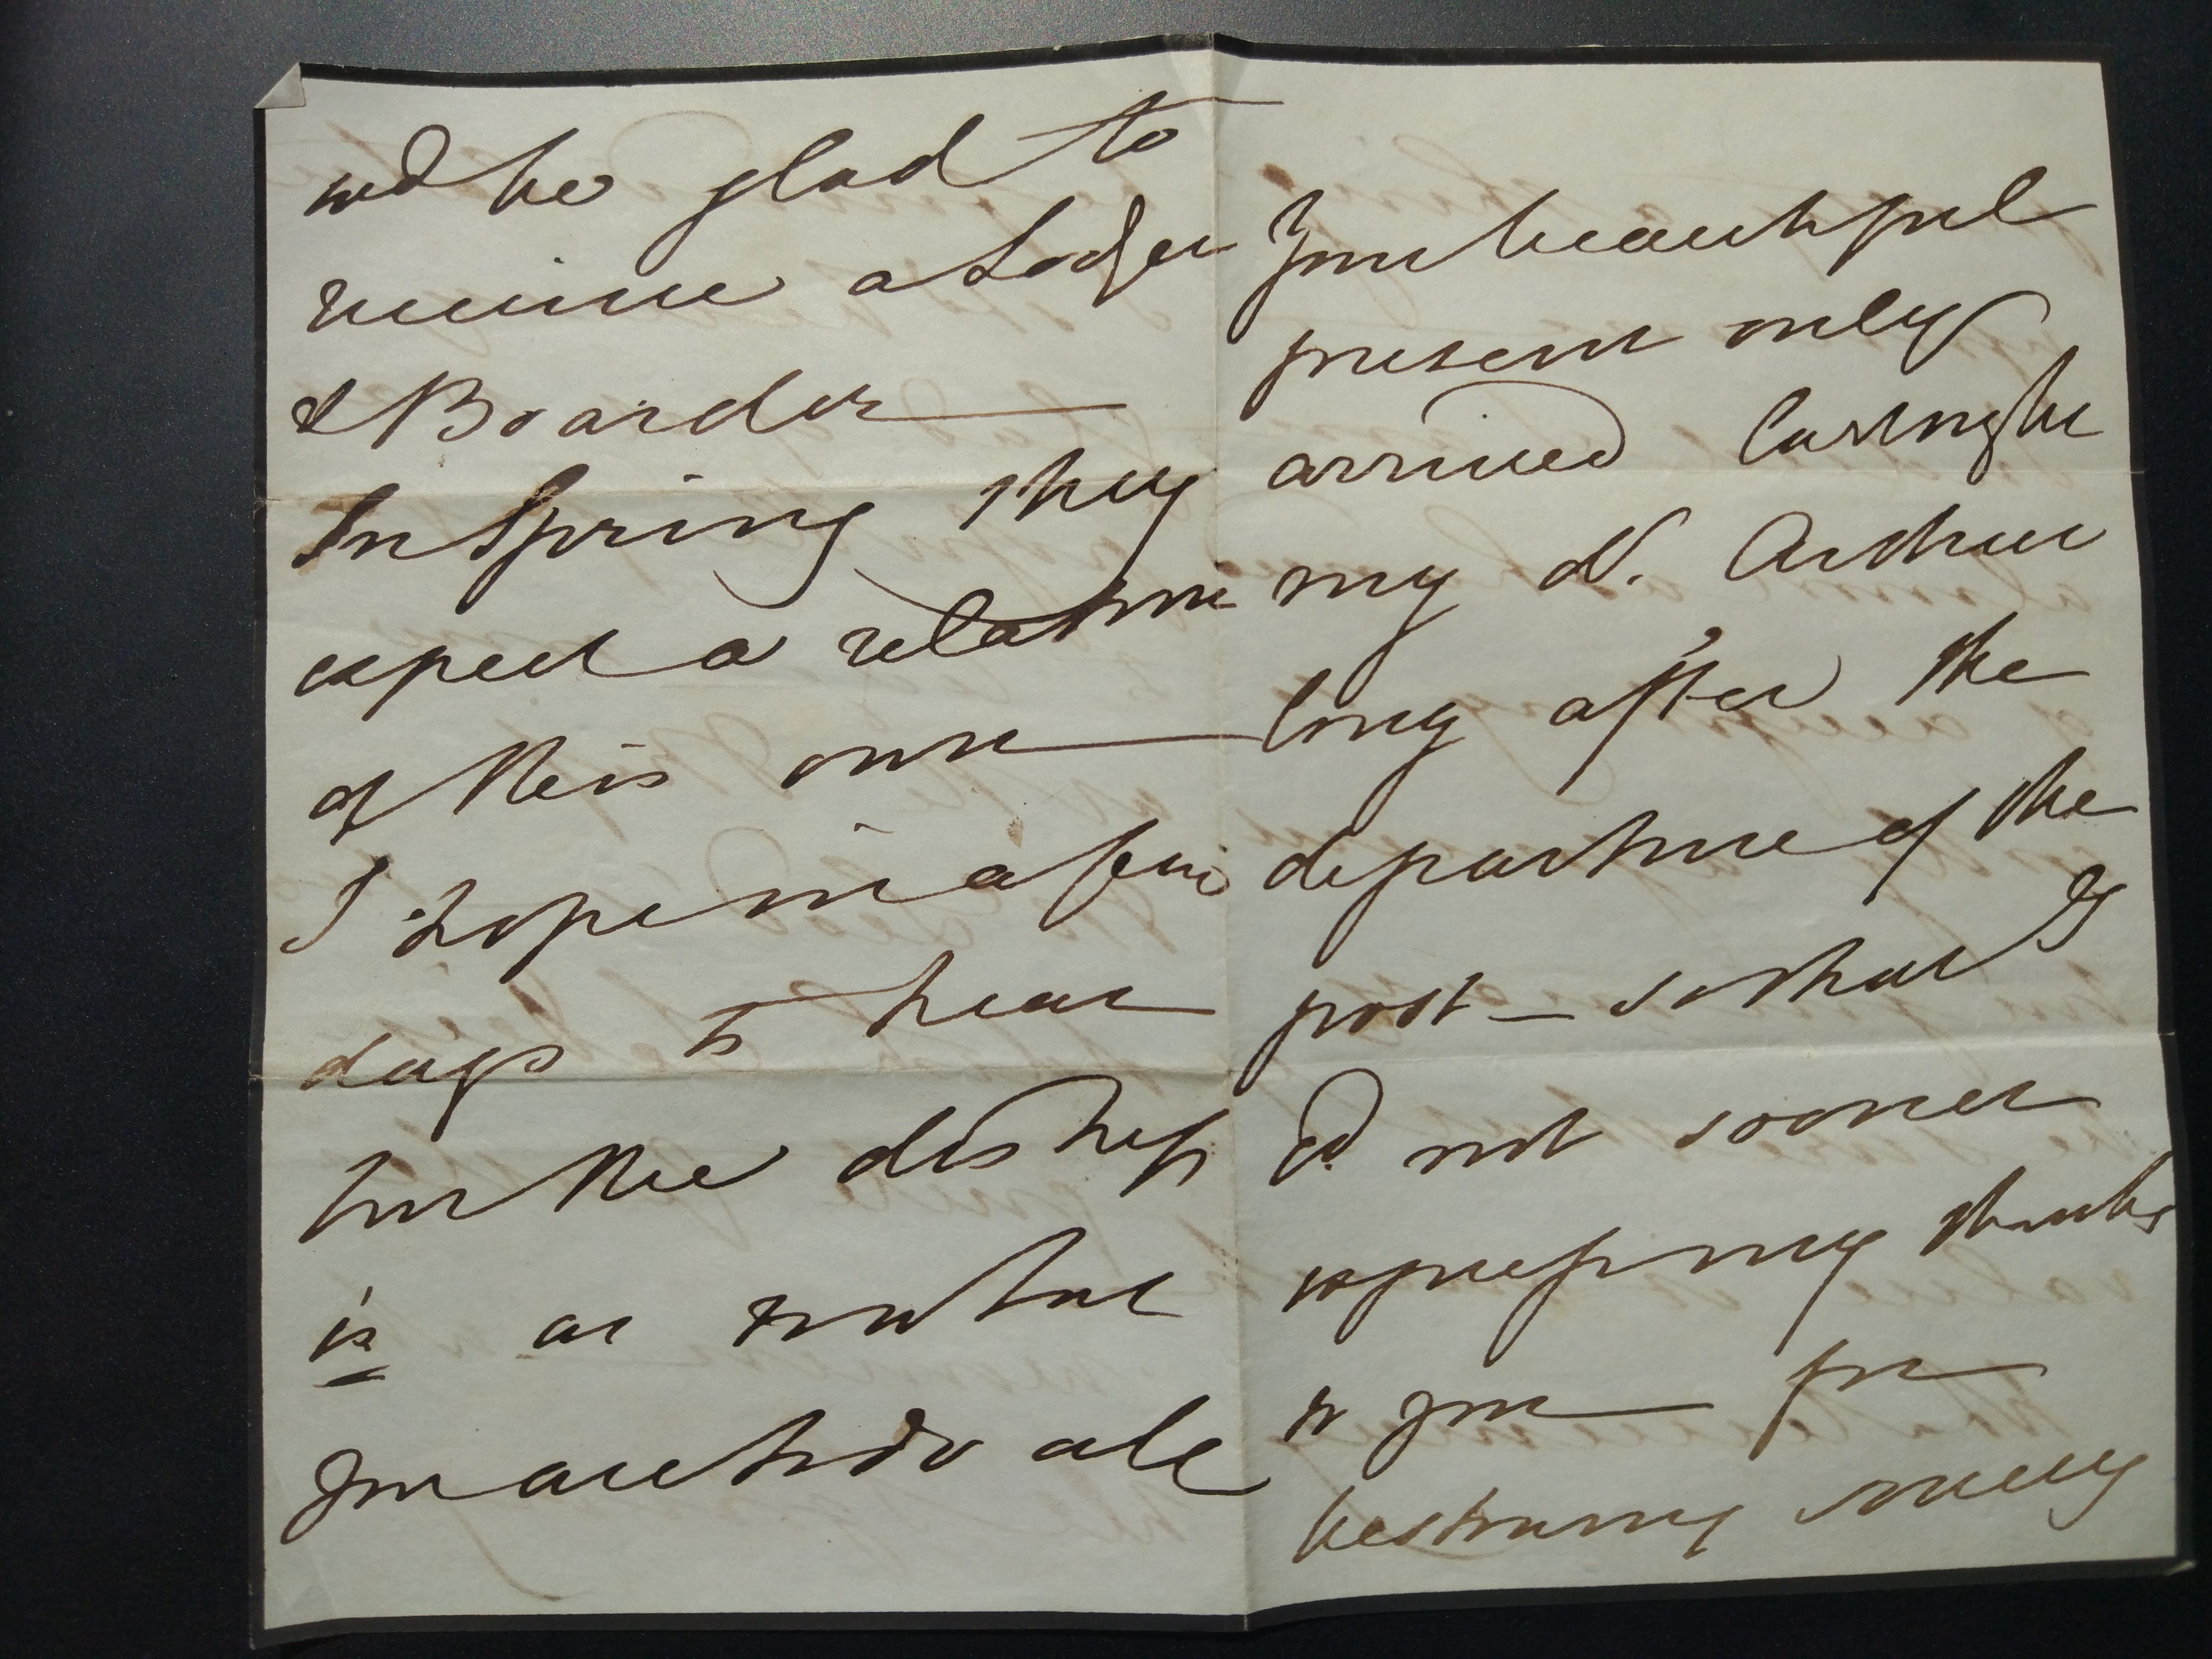 wd be glad to
receive a Lodger
& Boarder
In Spring they
expect a relation
of their own
I hope in a few
days to hear
the distress
is as
You are to do all
Your beautiful
present only
arrived last night
my d. Arthur
long after the
departure of the
post — so that I
cd. not sooner
express my thanks
to you for
bestowing